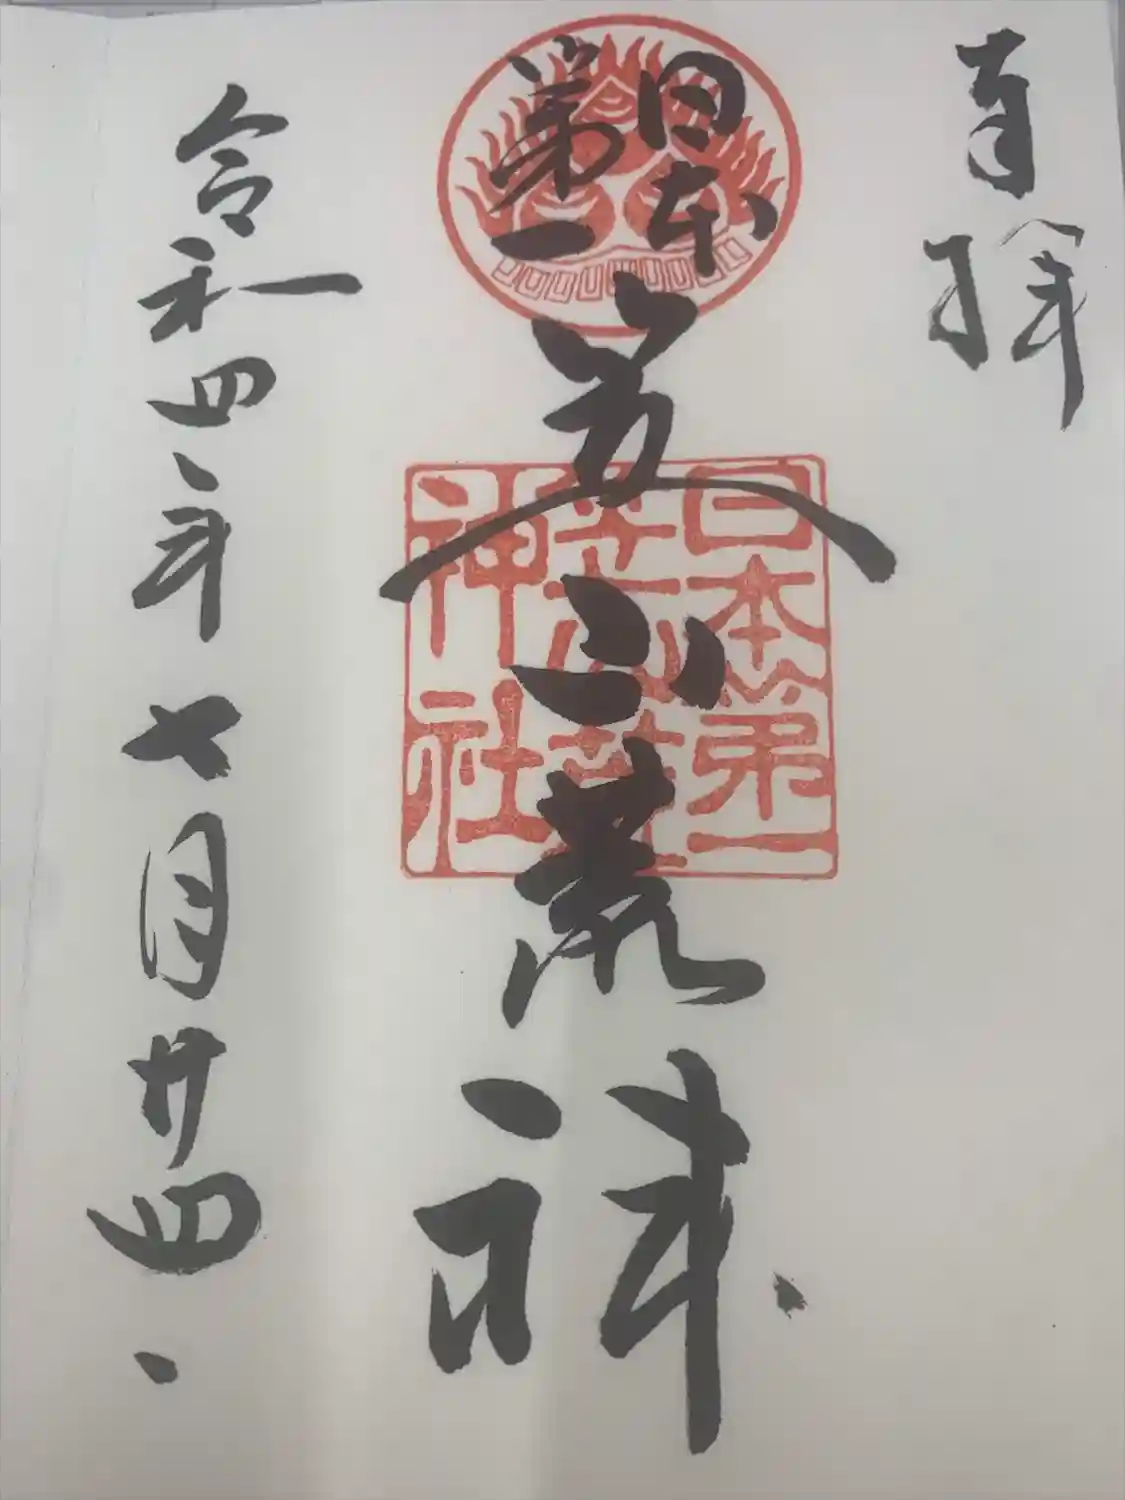 奉拝
日本
第一
笠山荒神
日本第一
笠山荒
神社
令和四年七月廿四日